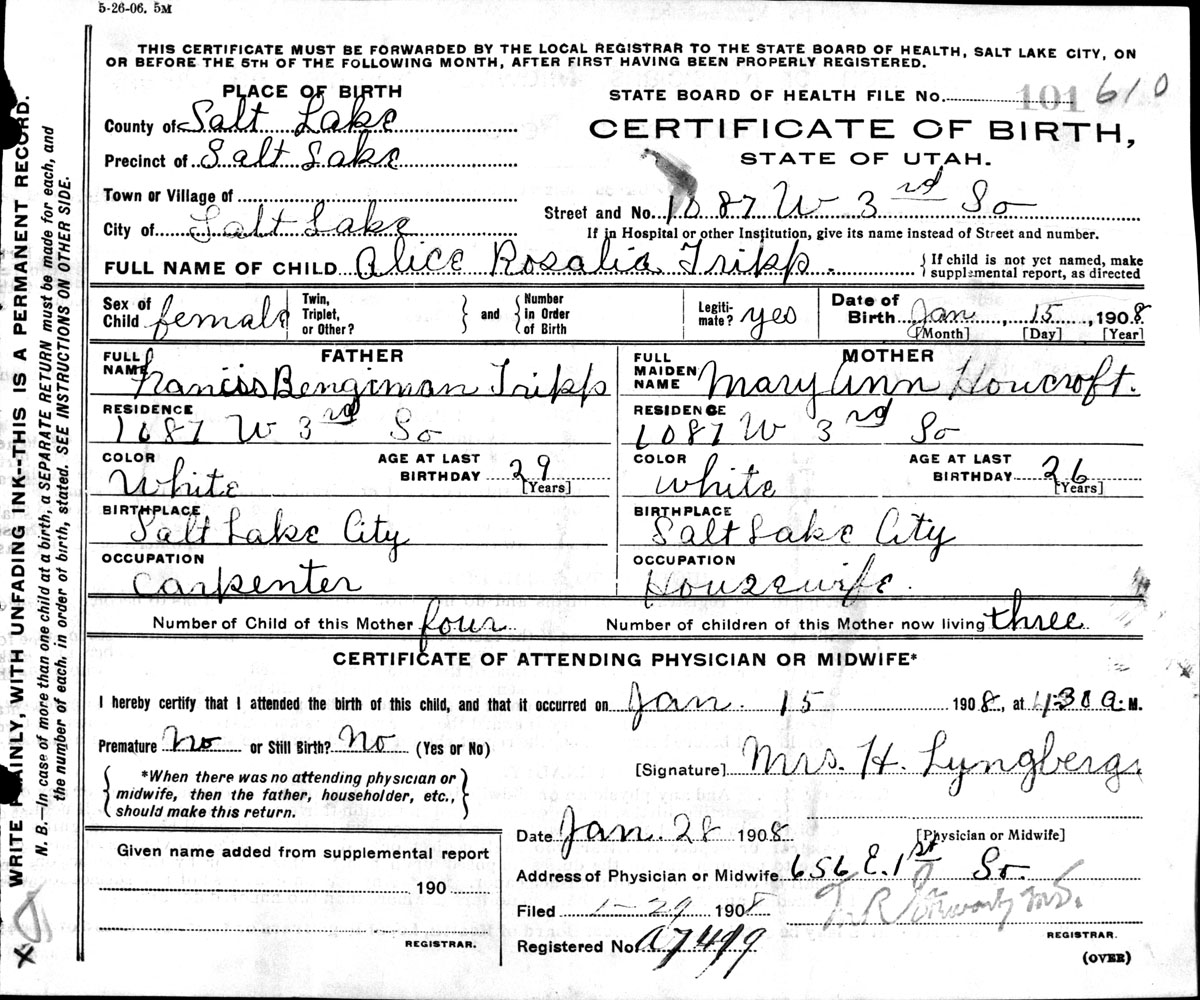 5-26-06. 5M
THIS CERTIFICATE MUST BE FORWARDED BY THE LOCAL REGISTRAR TO THE STATE BOARD OF HEALTH, SALT LAKE CITY, ON
OR BEFORE THE 5TH OF THE FOLLOWING MONTH, AFTER FIRST HAVING BEEN PROPERLY REGISTERED.
WRITE PLAINLY, WITH UNFADING INK--THIS IS A PERMANENT RECORD.
N. B.—In case of more than one child at a birth, a SEPARATE RETURN must be made for each, and
the number of each, in order of birth, stated. SEE INSTRUCTIONS ON OTHER SIDE.
PLACE OF BIRTH
County of Salt Lake
Precinct of Salt Lake
Town or Village of
City of Salt Lake
STATE BOARD OF HEALTH FILE No. 101 610
CERTIFICATE OF BIRTH,
STATE OF UTAH.
Street and No. 1087 W 3rd So
If in Hospital or other Institution, give its name instead of Street and number.
FULL NAME OF CHILD Alice Rosalia Tripp.
{ If child is not yet named, make
supplemental report, as directed
Sex of Child female
Twin, Triplet, or Other?
and
Number in Order of Birth
Legiti- mate? yes
Date of Birth Jan, 15, 1908
[Month] [Day] [Year]
FATHER
FULL NAME Franciss Bengiman Tripp
RESIDENCE
1087 W 3rd So
COLOR
White
AGE AT LAST BIRTHDAY 29
[Years]
BIRTHPLACE
Salt Lake City
OCCUPATION
Carpenter
MOTHER
FULL MAIDEN NAME Mary Ann Howcroft.
RESIDENCE
1087 W 3rd So
COLOR
white
AGE AT LAST BIRTHDAY 26
[Years]
BIRTHPLACE
Salt Lake City
OCCUPATION
Housewife.
Number of Child of this Mother four
Number of children of this Mother now living three
CERTIFICATE OF ATTENDING PHYSICIAN OR MIDWIFE*
I hereby certify that I attended the birth of this child, and that it occurred on Jan. 15 1908, at 4:30 a. M.
Premature No or Still Birth? No (Yes or No)
*When there was no attending physician or
midwife, then the father, householder, etc.,
should make this return.
[Signature] Mrs. H. Lyngberg.
[Physician or Midwife]
Date Jan. 28 1908
Address of Physician or Midwife 656 E. 1st So.
Given name added from supplemental report
190
REGISTRAR.
Filed 1-29 1908
Registered No. a7419
REGISTRAR.
(OVER)
X